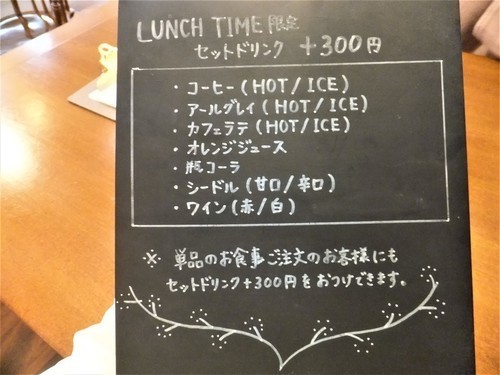 LUNCH TIME 限定
セットドリンク +300円
・コーヒー(HOT/ICE)
・アールグレイ(HOT/ICE)
・カフェラテ(HOT/ICE)
・オレンジジュース
・瓶コーラ
・シードル(甘口/辛口)
・ワイン(赤/白)
※ 単品のお食事ご注文のお客様にも
セットドリンク+300円をおつけできます。